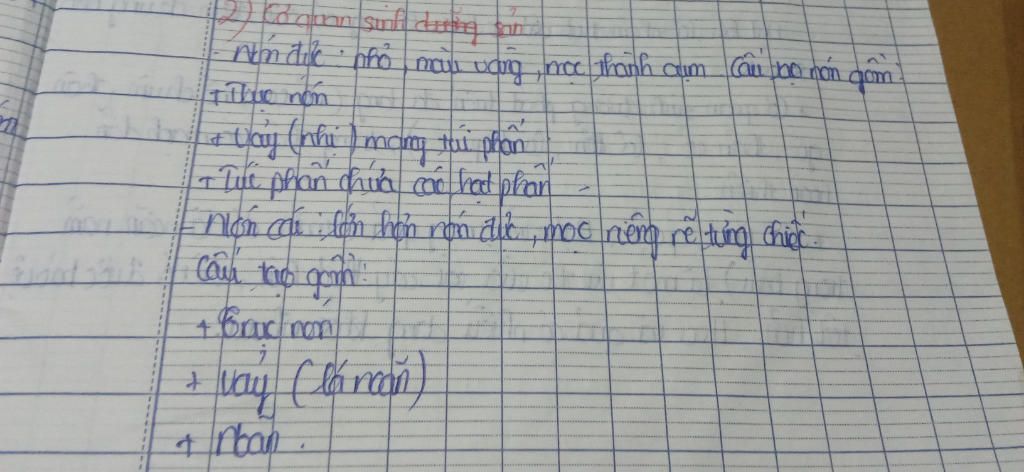 2) Cơ quan sinh dưỡng sản
- Nón đực: nhỏ, màu vàng, mọc thành cụm Cấu tạo nón gồm:
+ Trục nón
+ Vảy (nhị) mang túi phấn
+ Túi phấn chứa các hạt phấn
- Nón cái: lớn hơn nón đực, mọc riêng rẽ từng chiếc.
Cấu tạo gồm:
+ trục nón
+ Vảy (lá noãn)
+ Noãn.